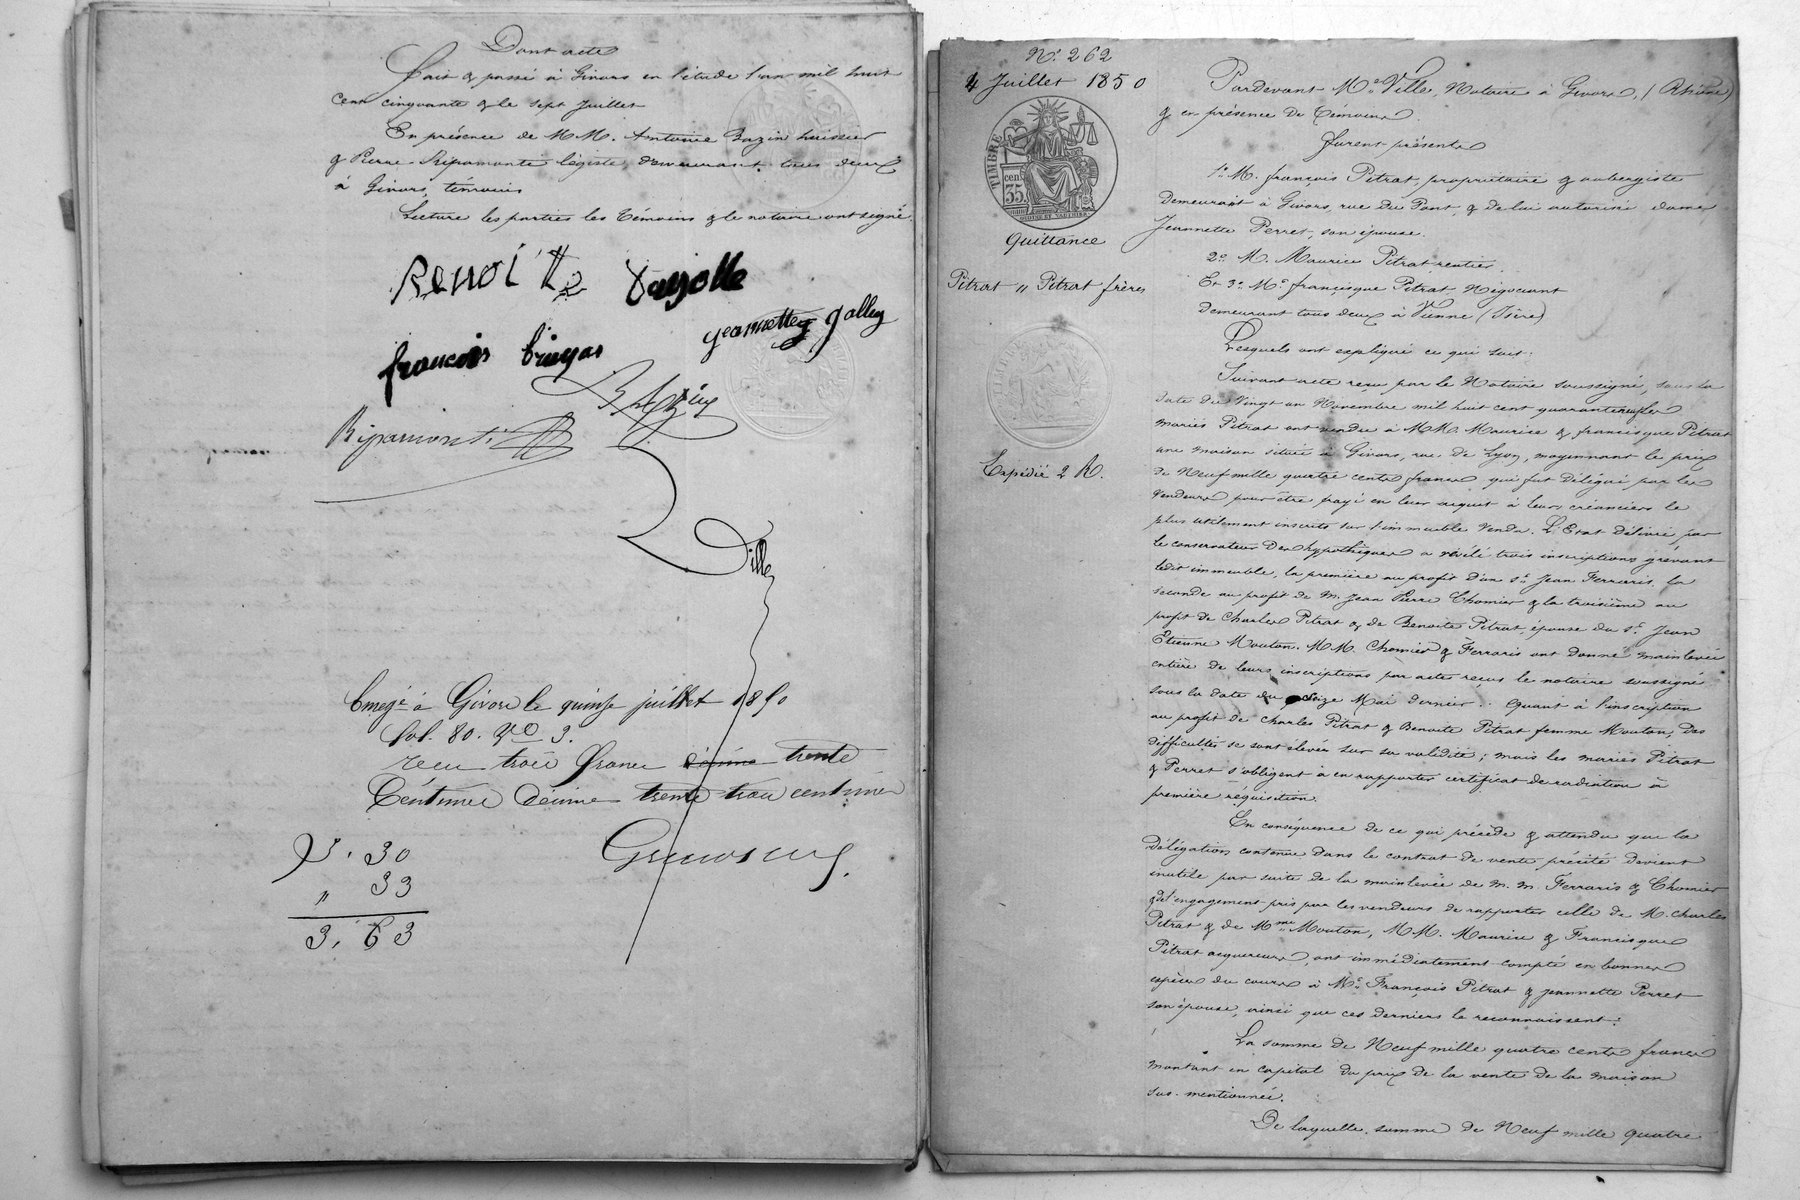 Dont acte
Fait & passé à Givors en l'étude l'an mil huit
cent cinquante & le sept Juillet
En présence de MM. Antoine Bazin huissier
& Pierre Ripamonti légiste, demeurant tous deux
à Givors, témoins
Lecture les parties les témoins & le notaire ont signé.
Benoitte Fayolle
francois bruyas jeannette jolley
Bazin
Ripamonti
Ville
Enregé à Givors le quinze juillet 1850
fol. 80. Vo 3.
reçu trois francs décime trente
Centimes Décime trente trois centimes
3. 30
" 33
3, 63
No. 262
4 Juillet 1850
TIMBRE
cen.
35.
Quittance
Pitrat " Pitrat frères
Expédié 2 R.
Pardevant Me. Ville, Notaire à Givors, (Rhône)
& en présence de Témoins.
furent présents
1o. M. françois Pitrat, propriétaire & aubergiste
demeurant à Givors, rue du Pont, & de lui autorisée dame
Jeannette Perret, son épouse.
2o. M. Maurice Pitrat rentier
Et 3o. Mr. françisque Pitrat Négociant
demeurant tous deux à Vienne (Isère)
Lesquels ont expliqué ce qui suit:
Suivant acte reçu par le Notaire soussigné, sous la
date du Vingt un Novembre mil huit cent quarante neuf les
mariés Pitrat ont vendu à MM. Maurice & francisque Pitrat
une maison située à Givors, rue de Lyon, moyennant le prix
de Neuf mille quatre cents francs qui fut délégué par les
vendeurs pour être payé en leur acquit à leurs créanciers le
plus utilement inscrits sur l'immeuble vendu. L'Etat délivré par
le conservateur des hypothèques a révélé trois inscriptions grévant
ledit immeuble, la première au profit d'un sr. Jean Ferraris, la
seconde au profit de M. Jean Pierre Chomier & la troisième au
profit de Charles Pitrat & de Benoite Pitrat, épouse du sr. Jean
Etienne Mouton. MM. Chomier & Ferraris ont donné mainlevée
entière de leurs inscriptions par actes reçus le notaire soussigné
sous la date du seize Mai dernier. Quant à l'inscription
au profit de Charles Pitrat & Benoite Pitrat femme Mouton, des
difficultés se sont élevées sur sa validité; mais les mariés Pitrat
& Perret s'obligent à en rapporter certificat de radiation à
première réquisition.
En conséquence de ce qui précède & attendu que la
délégation contenue dans le contrat de vente précité devient
inutile par suite de la mainlevée de M. M. Ferraris & Chomier
& de l'engagement pris par les vendeurs de rapporter celle de M. Charles
Pitrat & de Mme. Mouton, MM. Maurice & Francisque
Pitrat acquéreurs, ont immédiatement compté en bonnes
espèces du cours à Mr. François Pitrat & Jeannette Perret
son épouse, ainsi que ces derniers le reconnaissent:
La somme de Neuf mille quatre cents francs
montant en capital du prix de la vente de la maison
sus-mentionnée.
De laquelle somme de Neuf mille quatre